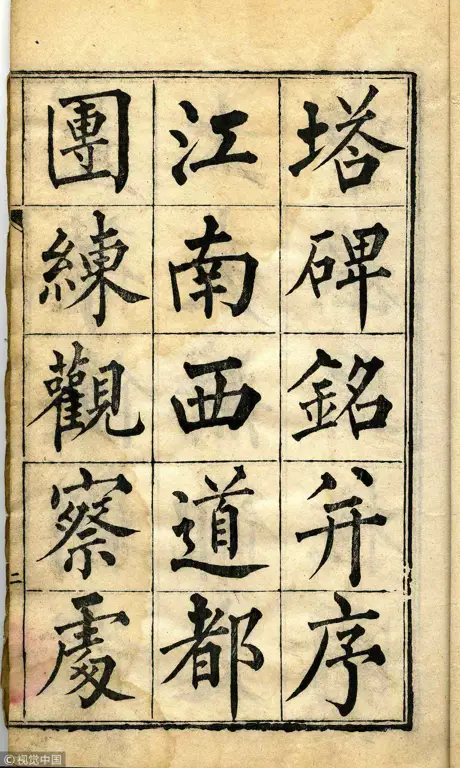 塔碑銘并序
江南西道都
團練觀察處
二
©视觉中国